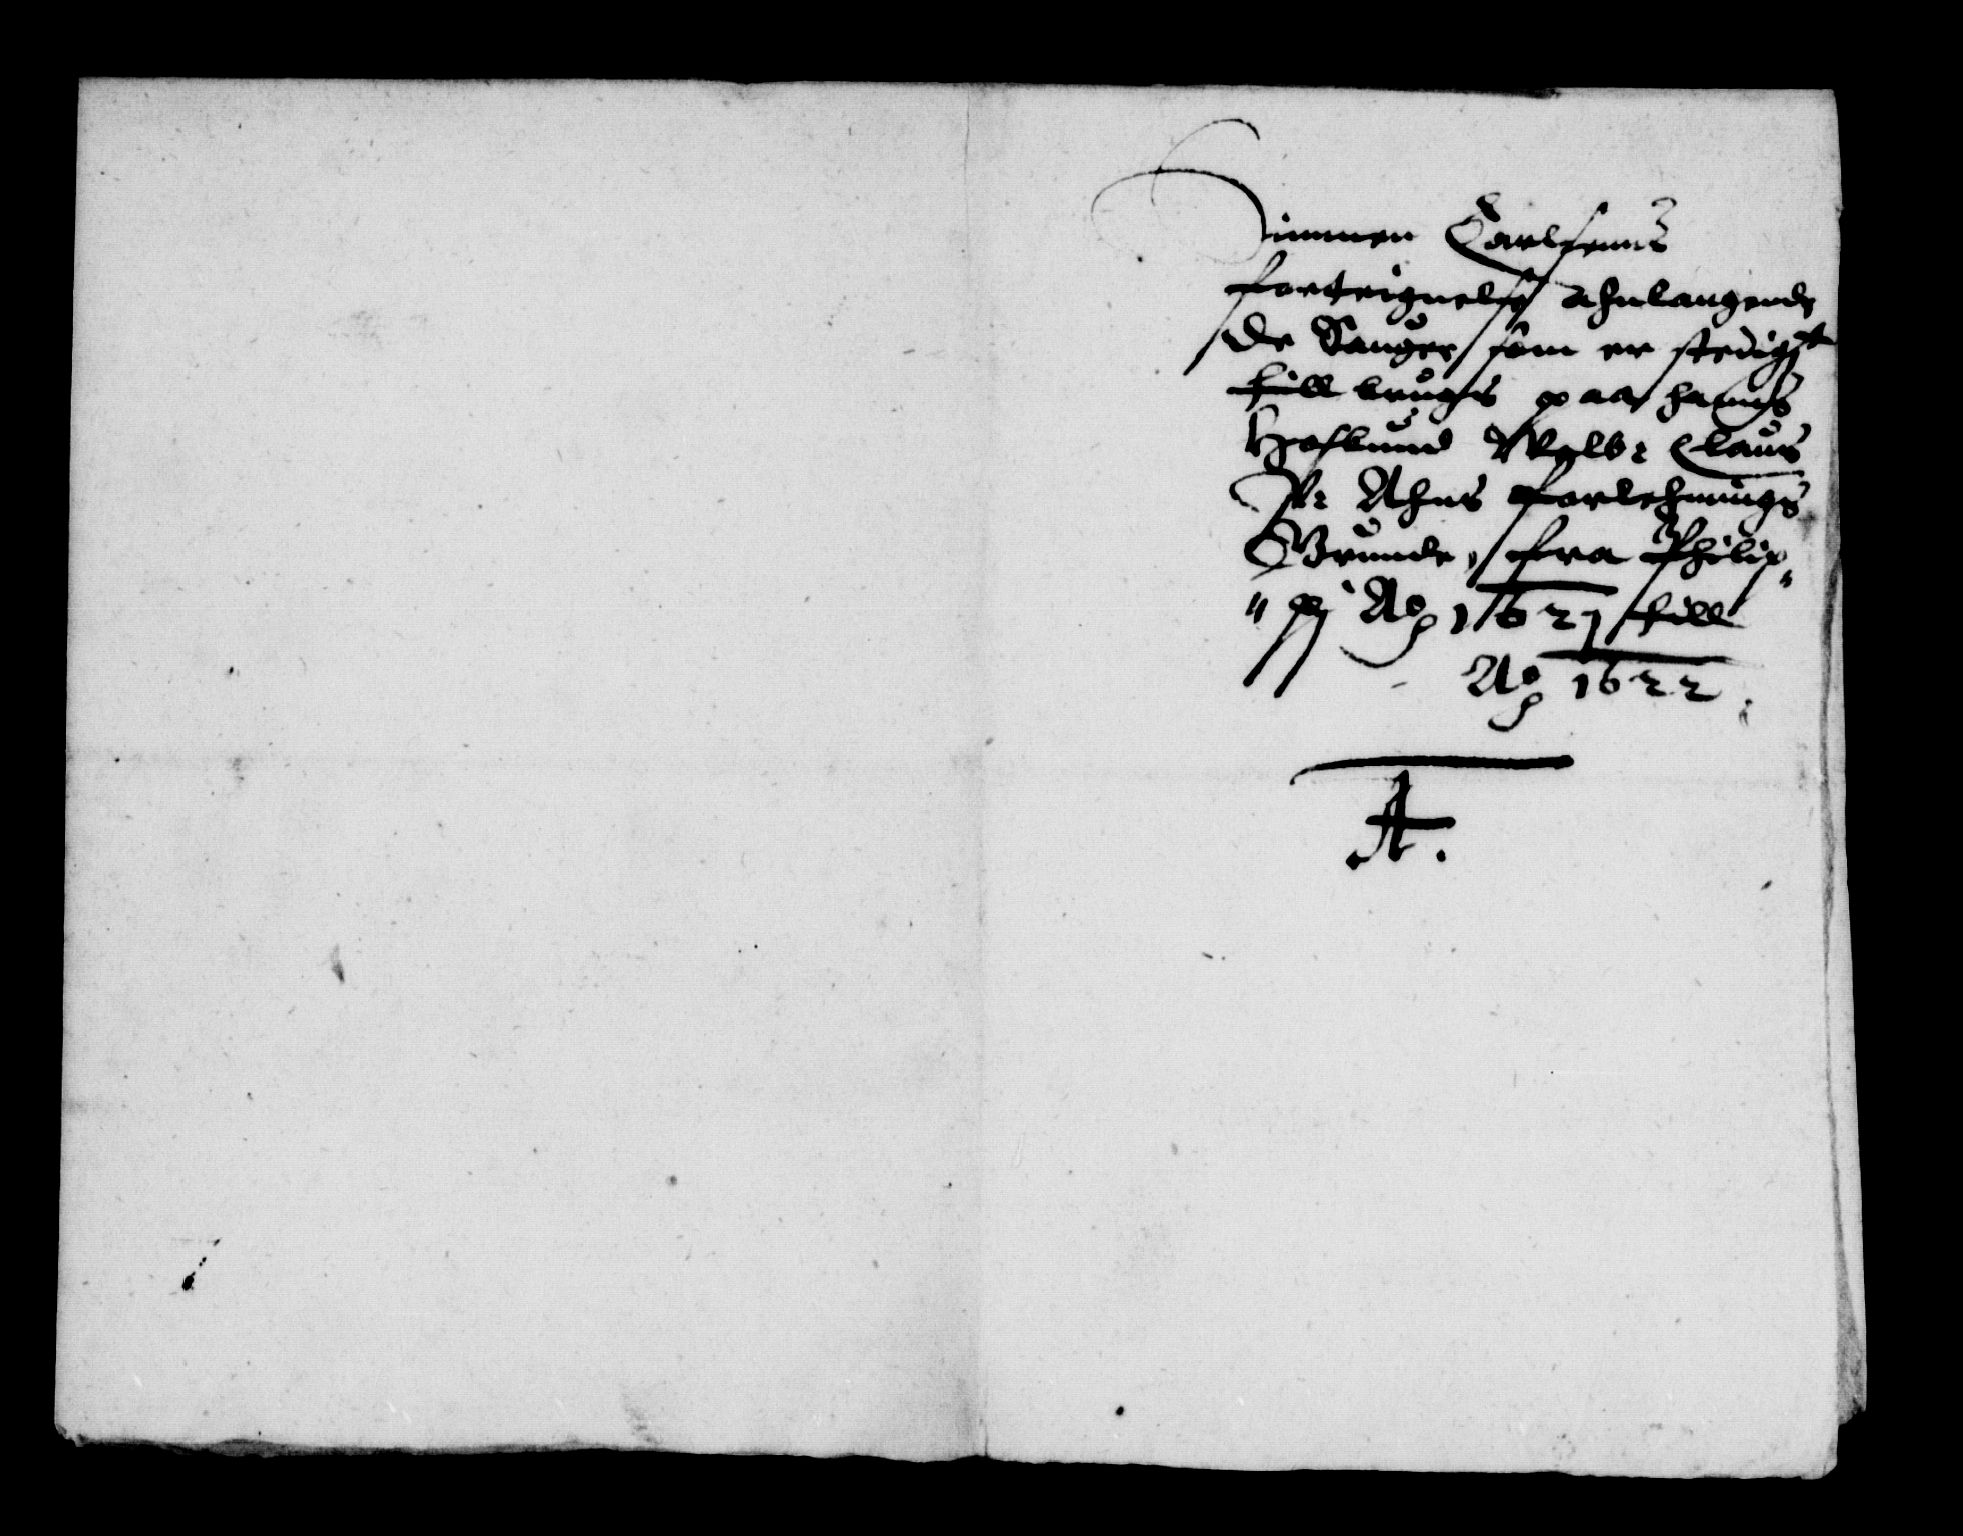 Simmen Carlsenns
forteignelse Ahnlangende
De Sauger som er stedigt
till brugis paa hanns
Hosbund Welb: Claus
Pr: Ahns forlehnings
Grunde, fra Philip„
„pj Ao 1621 till
Ao 1622
A.